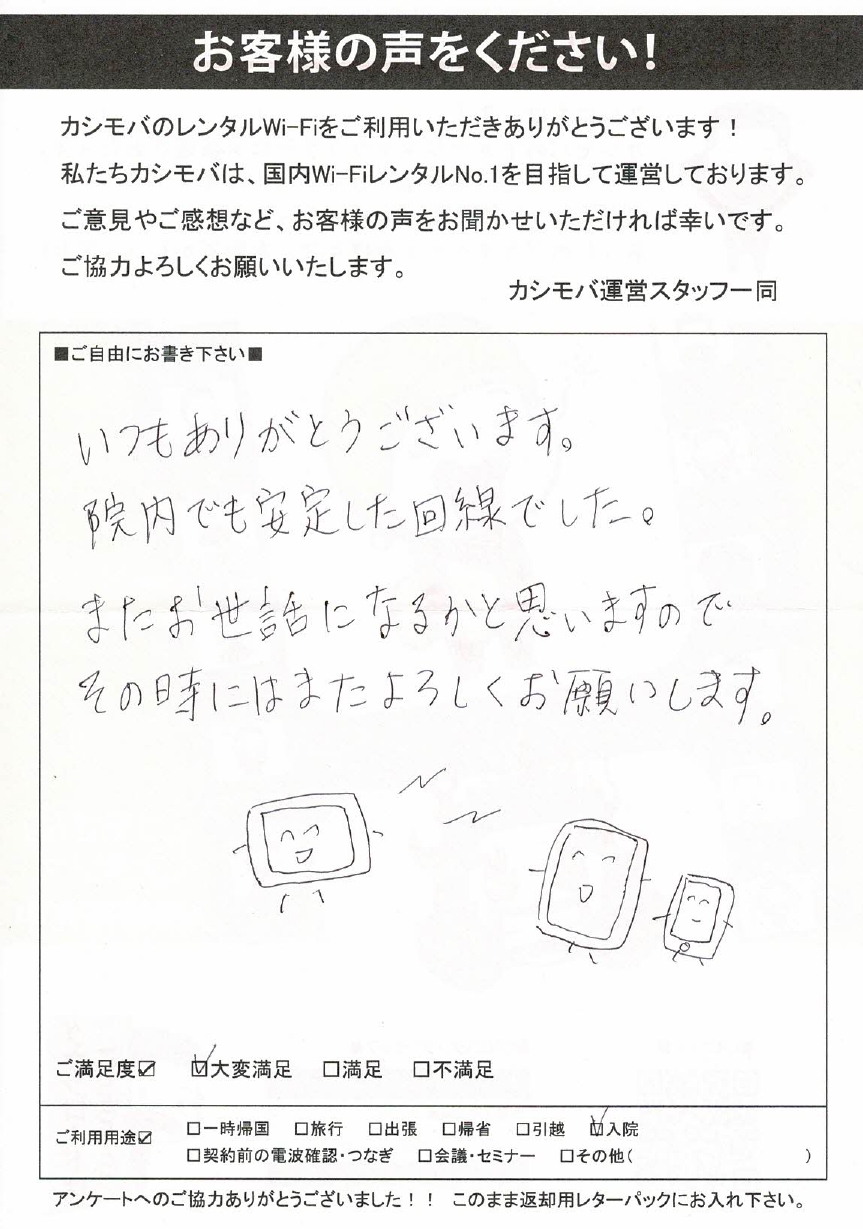 お客様の声をください!
カシモバのレンタルWi-Fiをご利用いただきありがとうございます！
私たちカシモバは、国内Wi-FiレンタルNo.1を目指して運営しております。
ご意見やご感想など、お客様の声をお聞かせいただければ幸いです。
ご協力よろしくお願いいたします。
カシモバ運営スタッフ一同
■ご自由にお書き下さい■
いつもありがとうございます。
院内でも安定した回線でした。
またお世話になるかと思いますので
その時にはまたよろしくお願いします。
ご満足度☑ ☑大変満足 □満足 □不満足
ご利用用途☑ □一時帰国 □旅行 □出張 □帰省 □引越 ☑入院
□契約前の電波確認・つなぎ □会議・セミナー □その他( )
アンケートへのご協力ありがとうございました！！ このまま返却用レターパックにお入れ下さい。